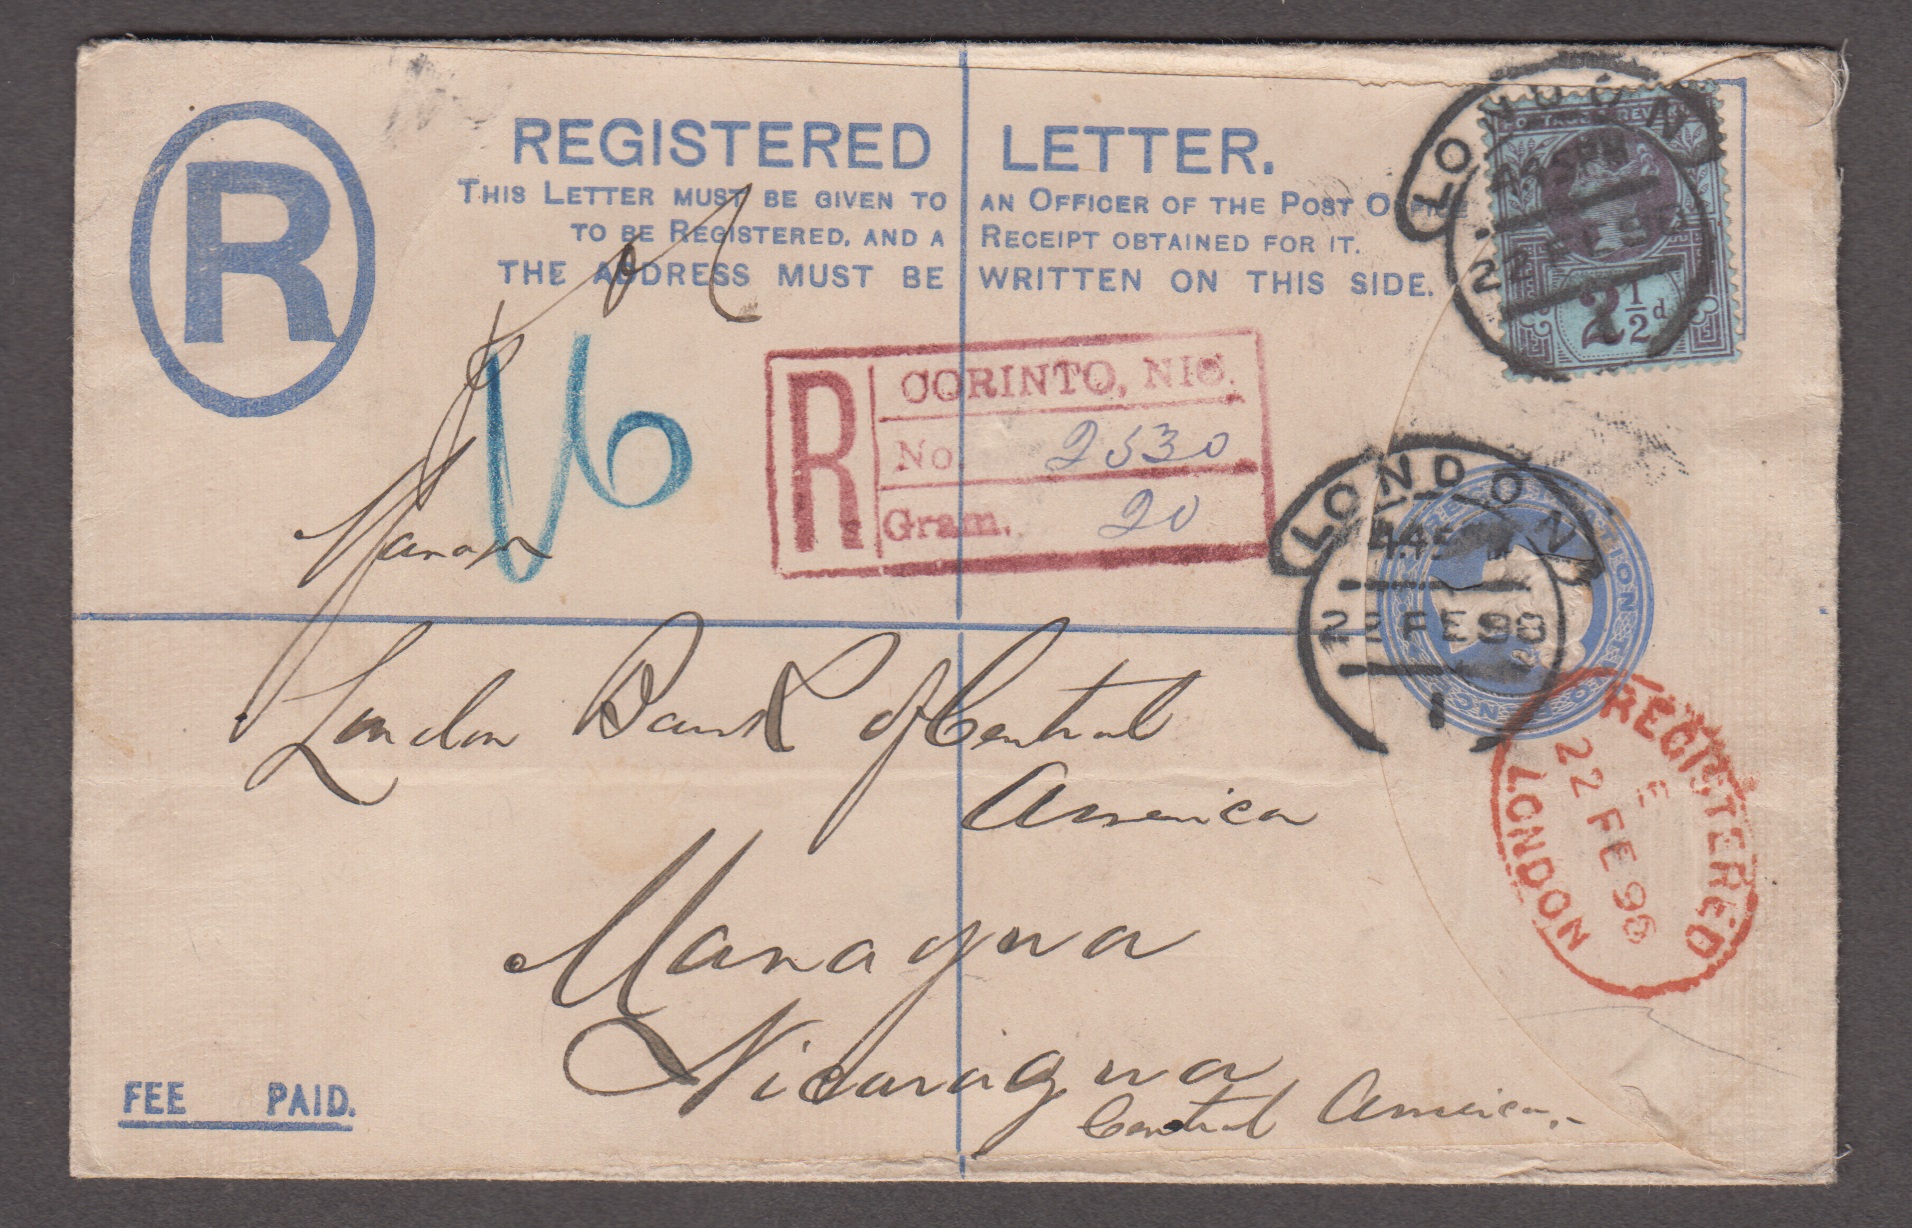 R
REGISTERED LETTER.
THIS LETTER MUST BE GIVEN TO AN OFFICER OF THE POST OFFICE
TO BE REGISTERED, AND A RECEIPT OBTAINED FOR IT.
THE ADDRESS MUST BE WRITTEN ON THIS SIDE.
LONDON
4.45PM
22 FE 98
1
POSTAGE REVENUE
2½d
R
CORINTO, NIC.
No. 2530
Gram. 20
LONDON
22 FE 98
1
REGISTRATION
Manager
London Bank of Central
America
Managua
Nicaragua
Central America.
REGISTERED
E
22 FE 98
LONDON
FEE PAID.